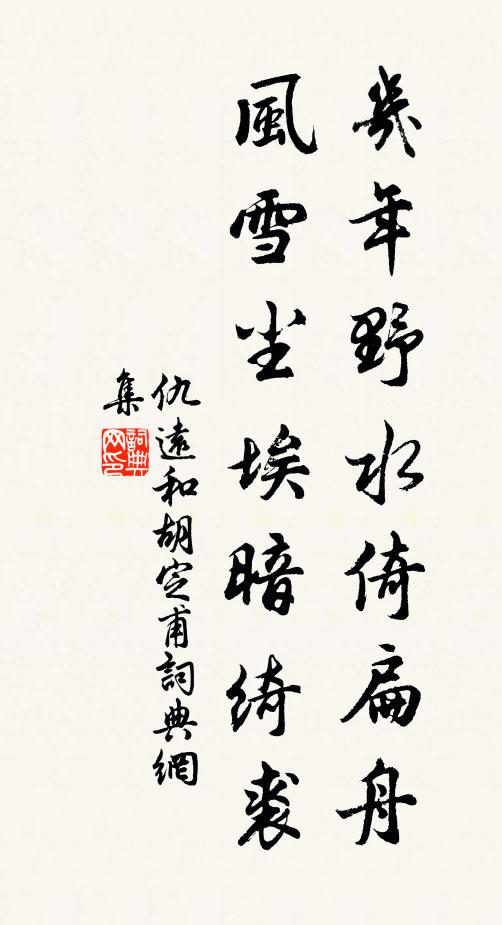 幾年野水倚扁舟
風雪尘埃暗绮裘
仇遠和胡定甫詞典網
集
詞典网印